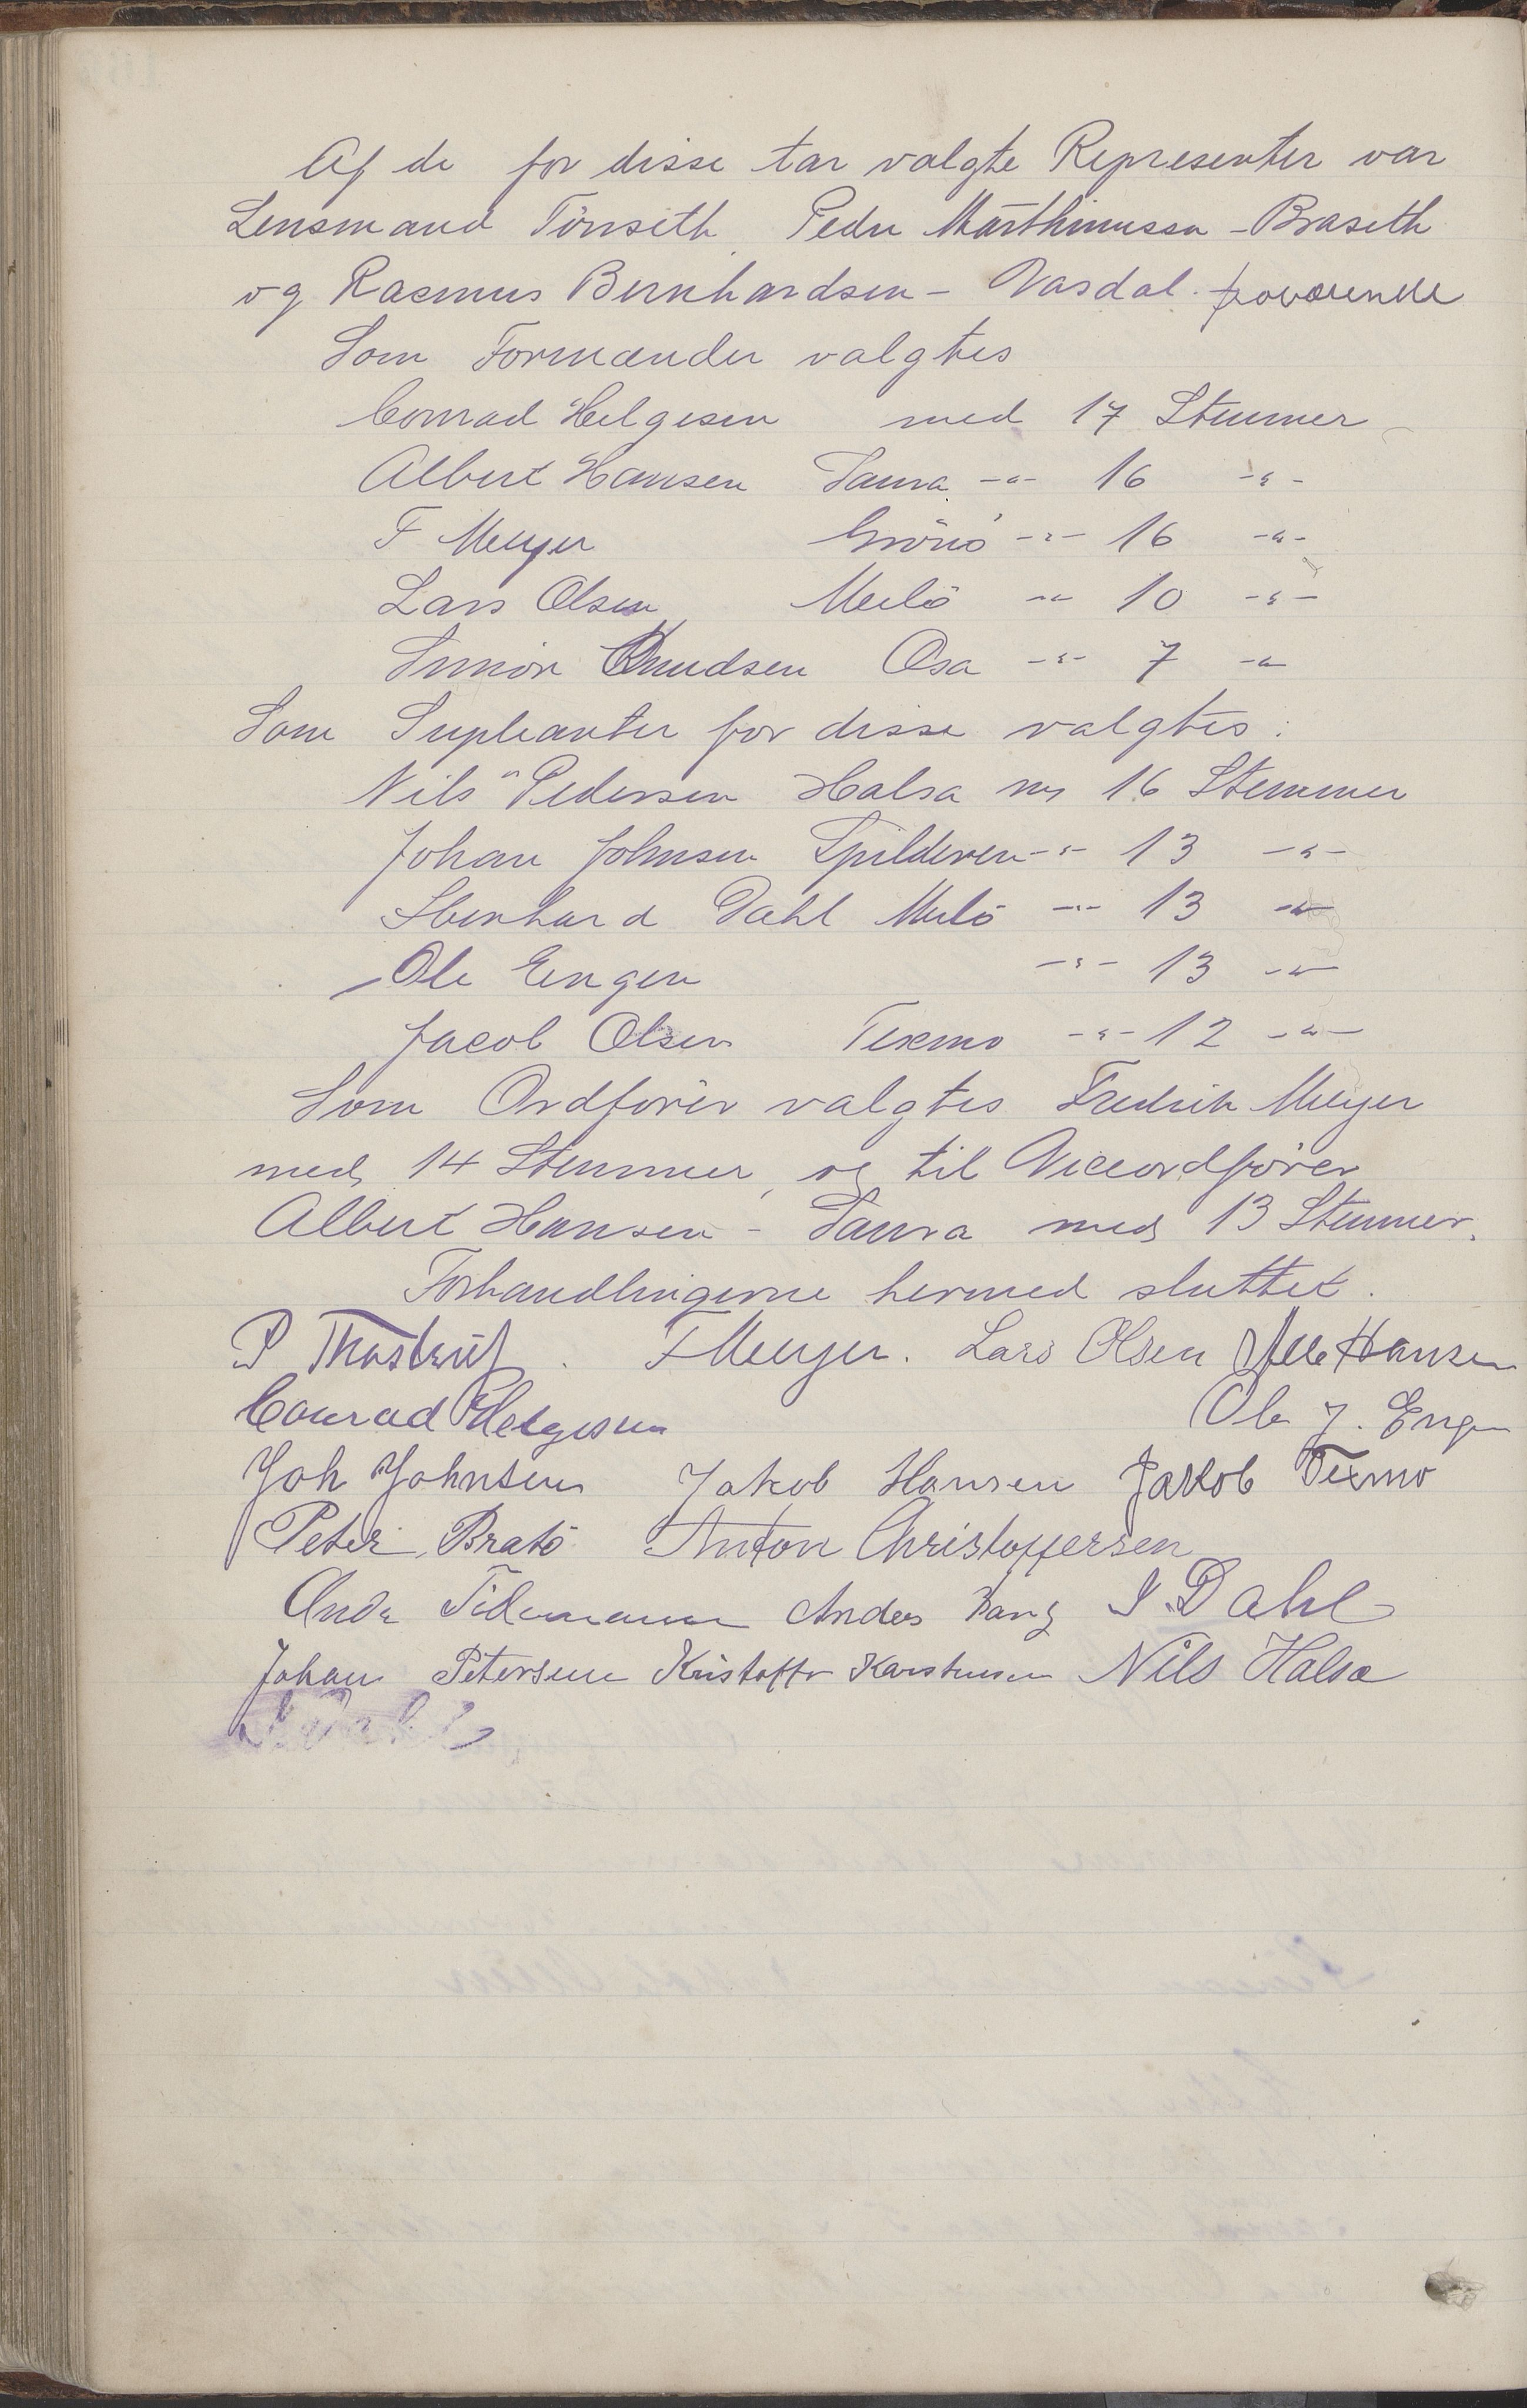 Af de for disse tar valgte Representer var
Lensmand Tönseth Peder Marthinussen - Braseth
og Rasmus Bernhardsen - Vasdal fraværende
Som Formænder valgtes
Conrad Helgesen med 17 Stemmer
Albert Hansen Saura -"- 16 -"-
F Meyer Grönö -"- 16 -"-
Lars Olsen Melö -"- 10 -"-
Simon Knudsen Osa -"- 7 -"-
Som Supleanter for disse valgtes:
Nils Pedersen Halsa m 16 Stemmer
Johan Johnsen Spilderen -"- 13 -"-
Ebenhard Dahl Melö -"- 13 -"-
Ole Engen -"- 13 -"-
Jacob Olsen Texmo -"- 12 -"-
Som Ordförer valgtes Fredrik Meyer
med 14 Stemmer, og til Viceordförer
Albert Hansen - Saura med 13 Stemmer.
Forhandlingerne hermed sluttet.
P Thostrup. F Meyer. Lars Olsen Alb Hansen
Conrad Helgesen Ole J. Engen
Joh Johnsen Jakob Hansen Jakob Texmo
Peter Bratö Anton Christoffersen
Andr Tidemann Anders Vang J. Dahl
Johan Petersen Kristoffer Karstensen Nils Halsa
J. Dahl